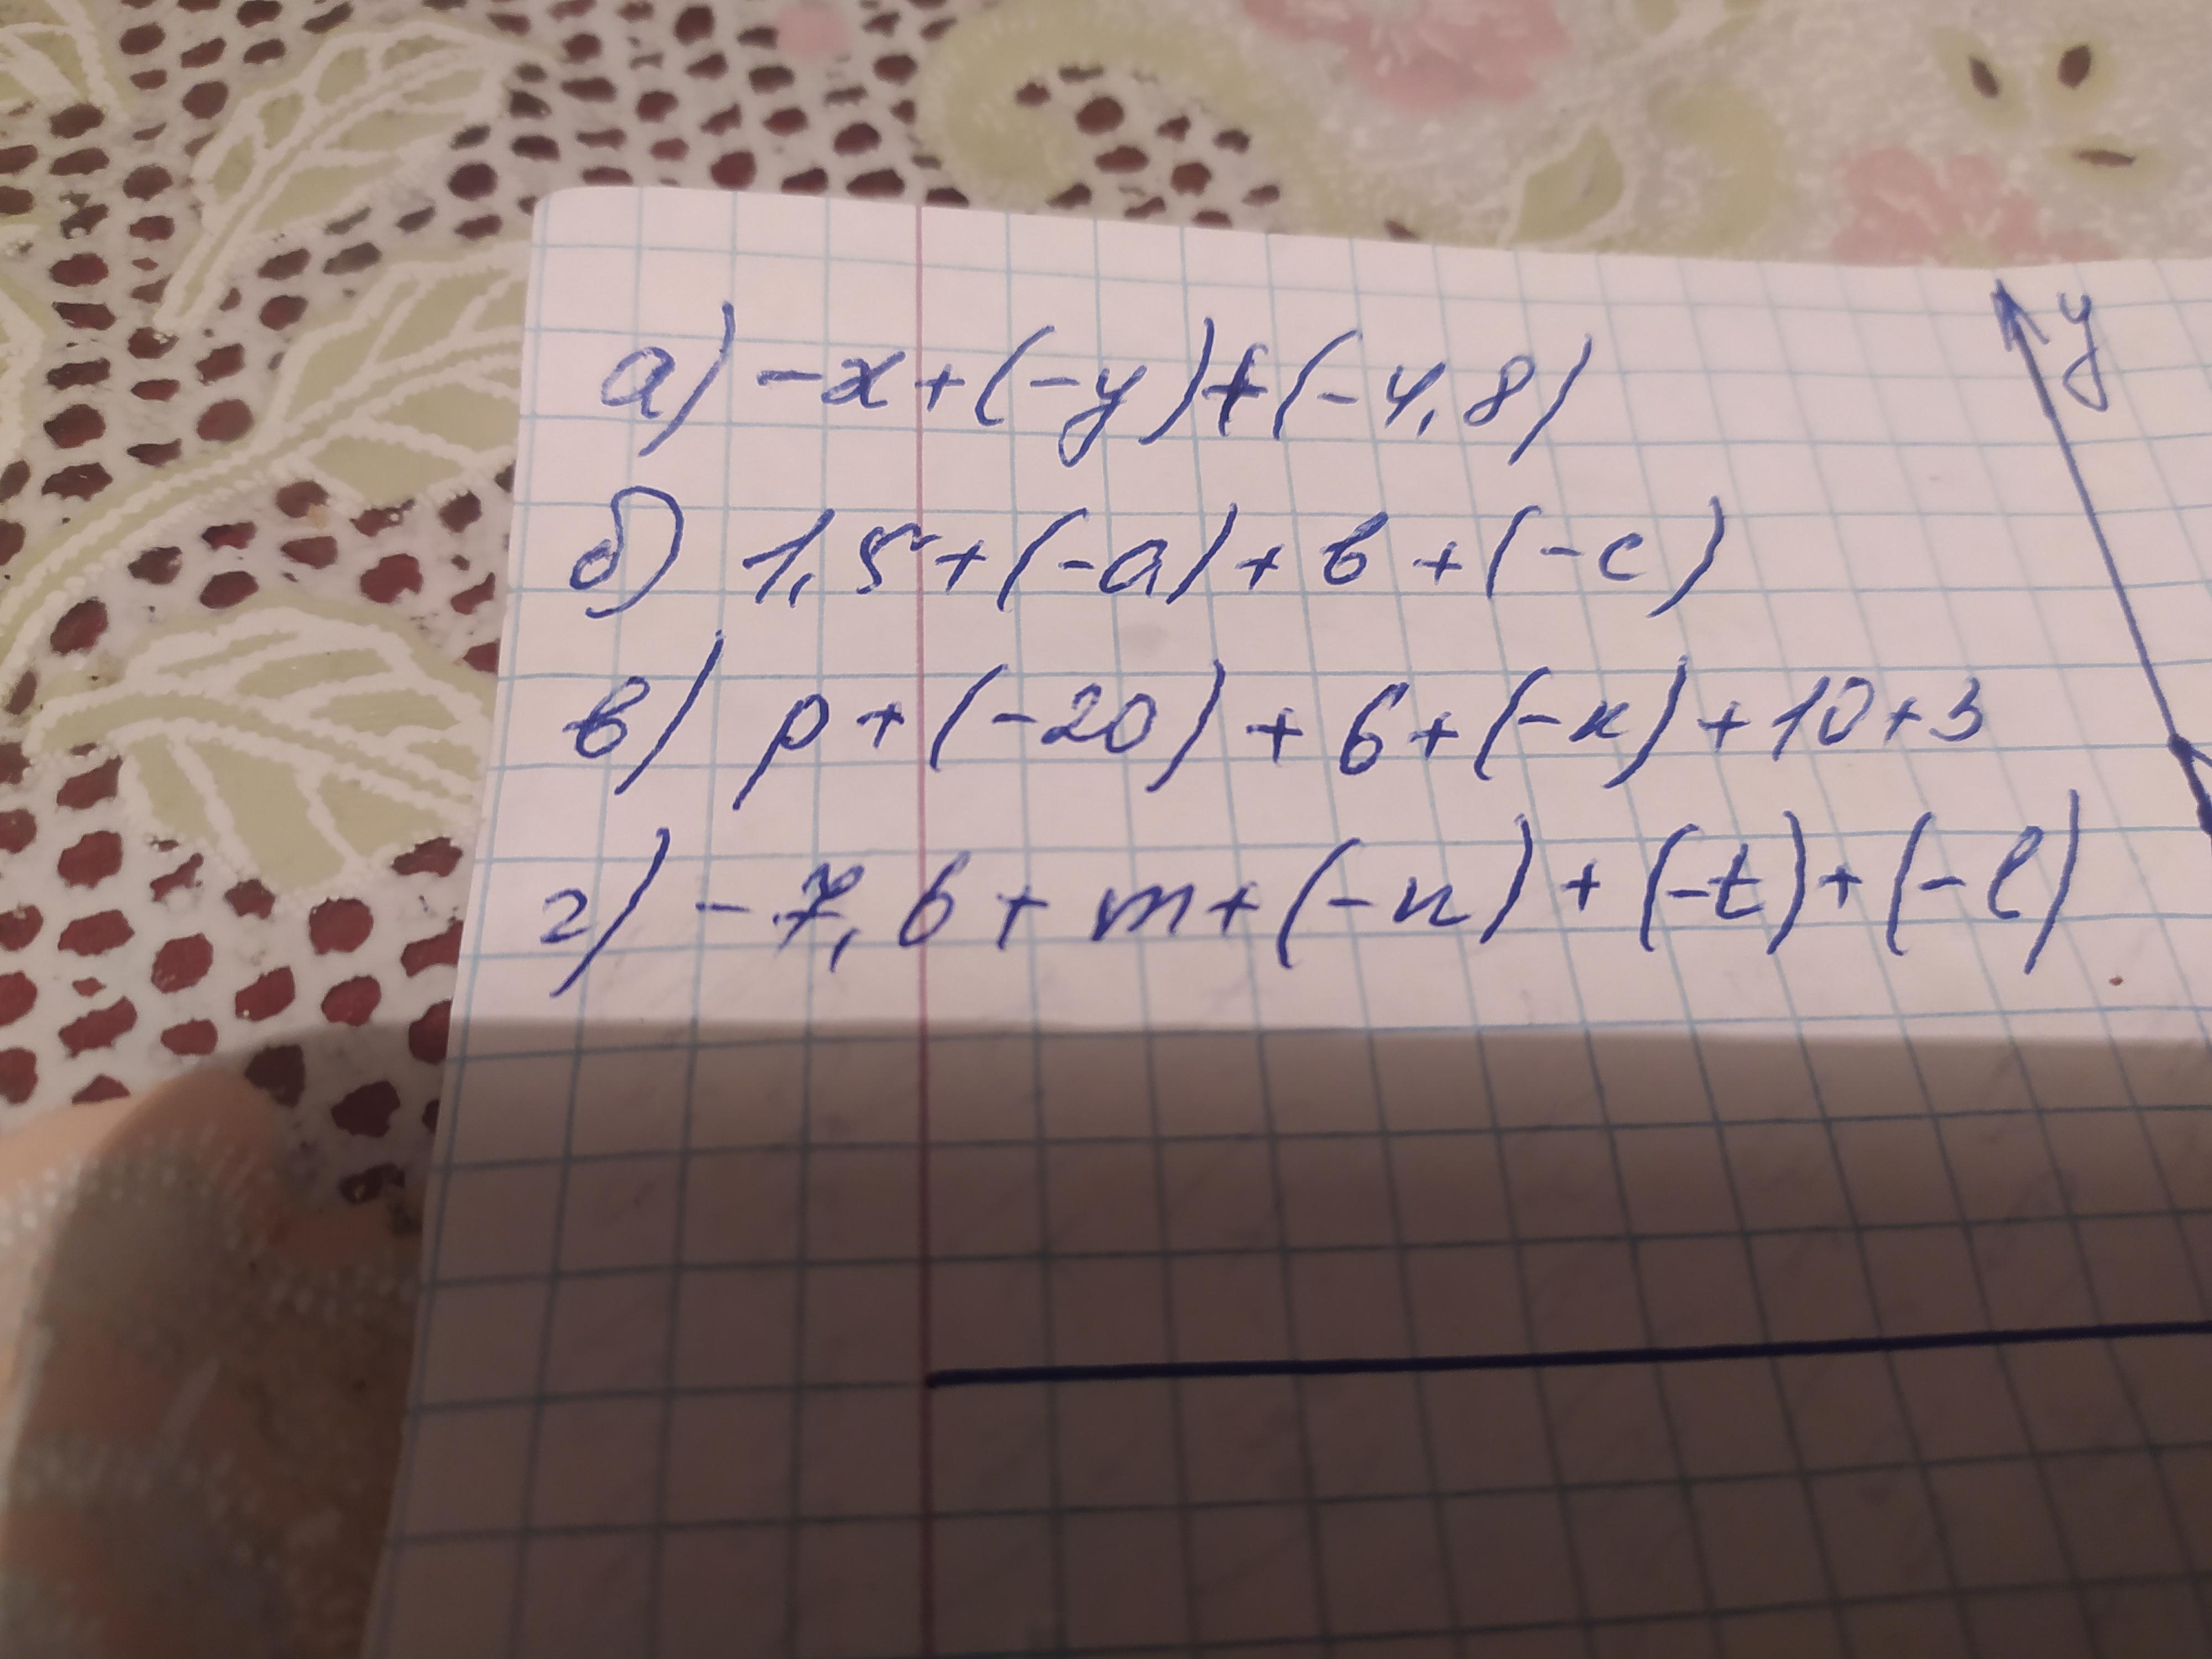 а) -x+(-y)+(-4,8)
y
б) 1,5+(-a)+в+(-c)
в) p+(-20)+6+(-к)+10+3
г) -7,6+m+(-n)+(-t)+(-l)